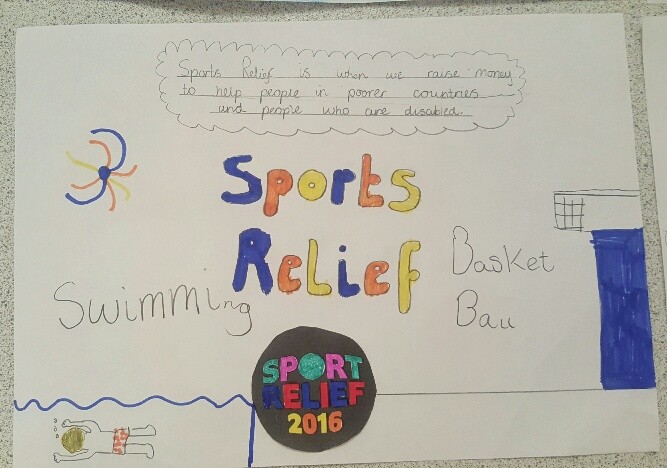 Sports Relief is when we raise money
to help people in poorer countries
and people who are disabled.
Sports
Relief
Swimming
Basket
Ball
SPORT
RELIEF
2016